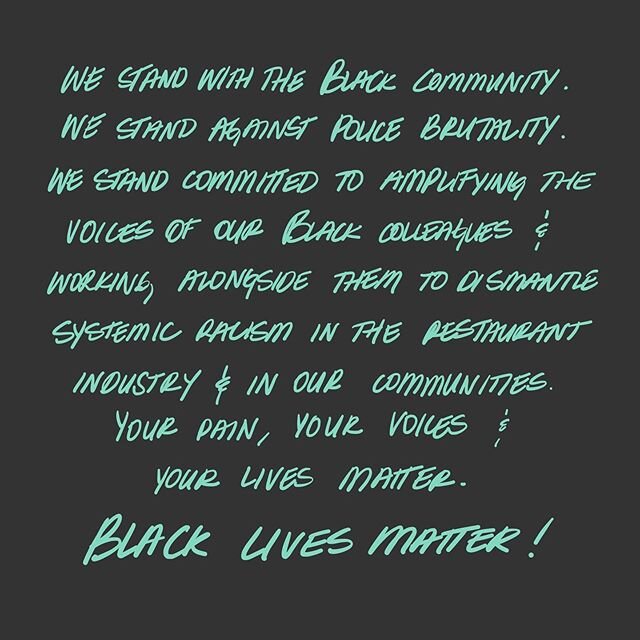 WE STAND WITH THE BLACK COMMUNITY.
WE STAND AGAINST POLICE BRUTALITY.
WE STAND COMMITTED TO AMPLIFYING THE
VOICES OF OUR BLACK COLLEAGUES &
WORKING ALONGSIDE THEM TO DISMANTLE
SYSTEMIC RACISM IN THE RESTAURANT
INDUSTRY & IN OUR COMMUNITIES.
YOUR PAIN, YOUR VOICES &
YOUR LIVES MATTER.
BLACK LIVES MATTER!